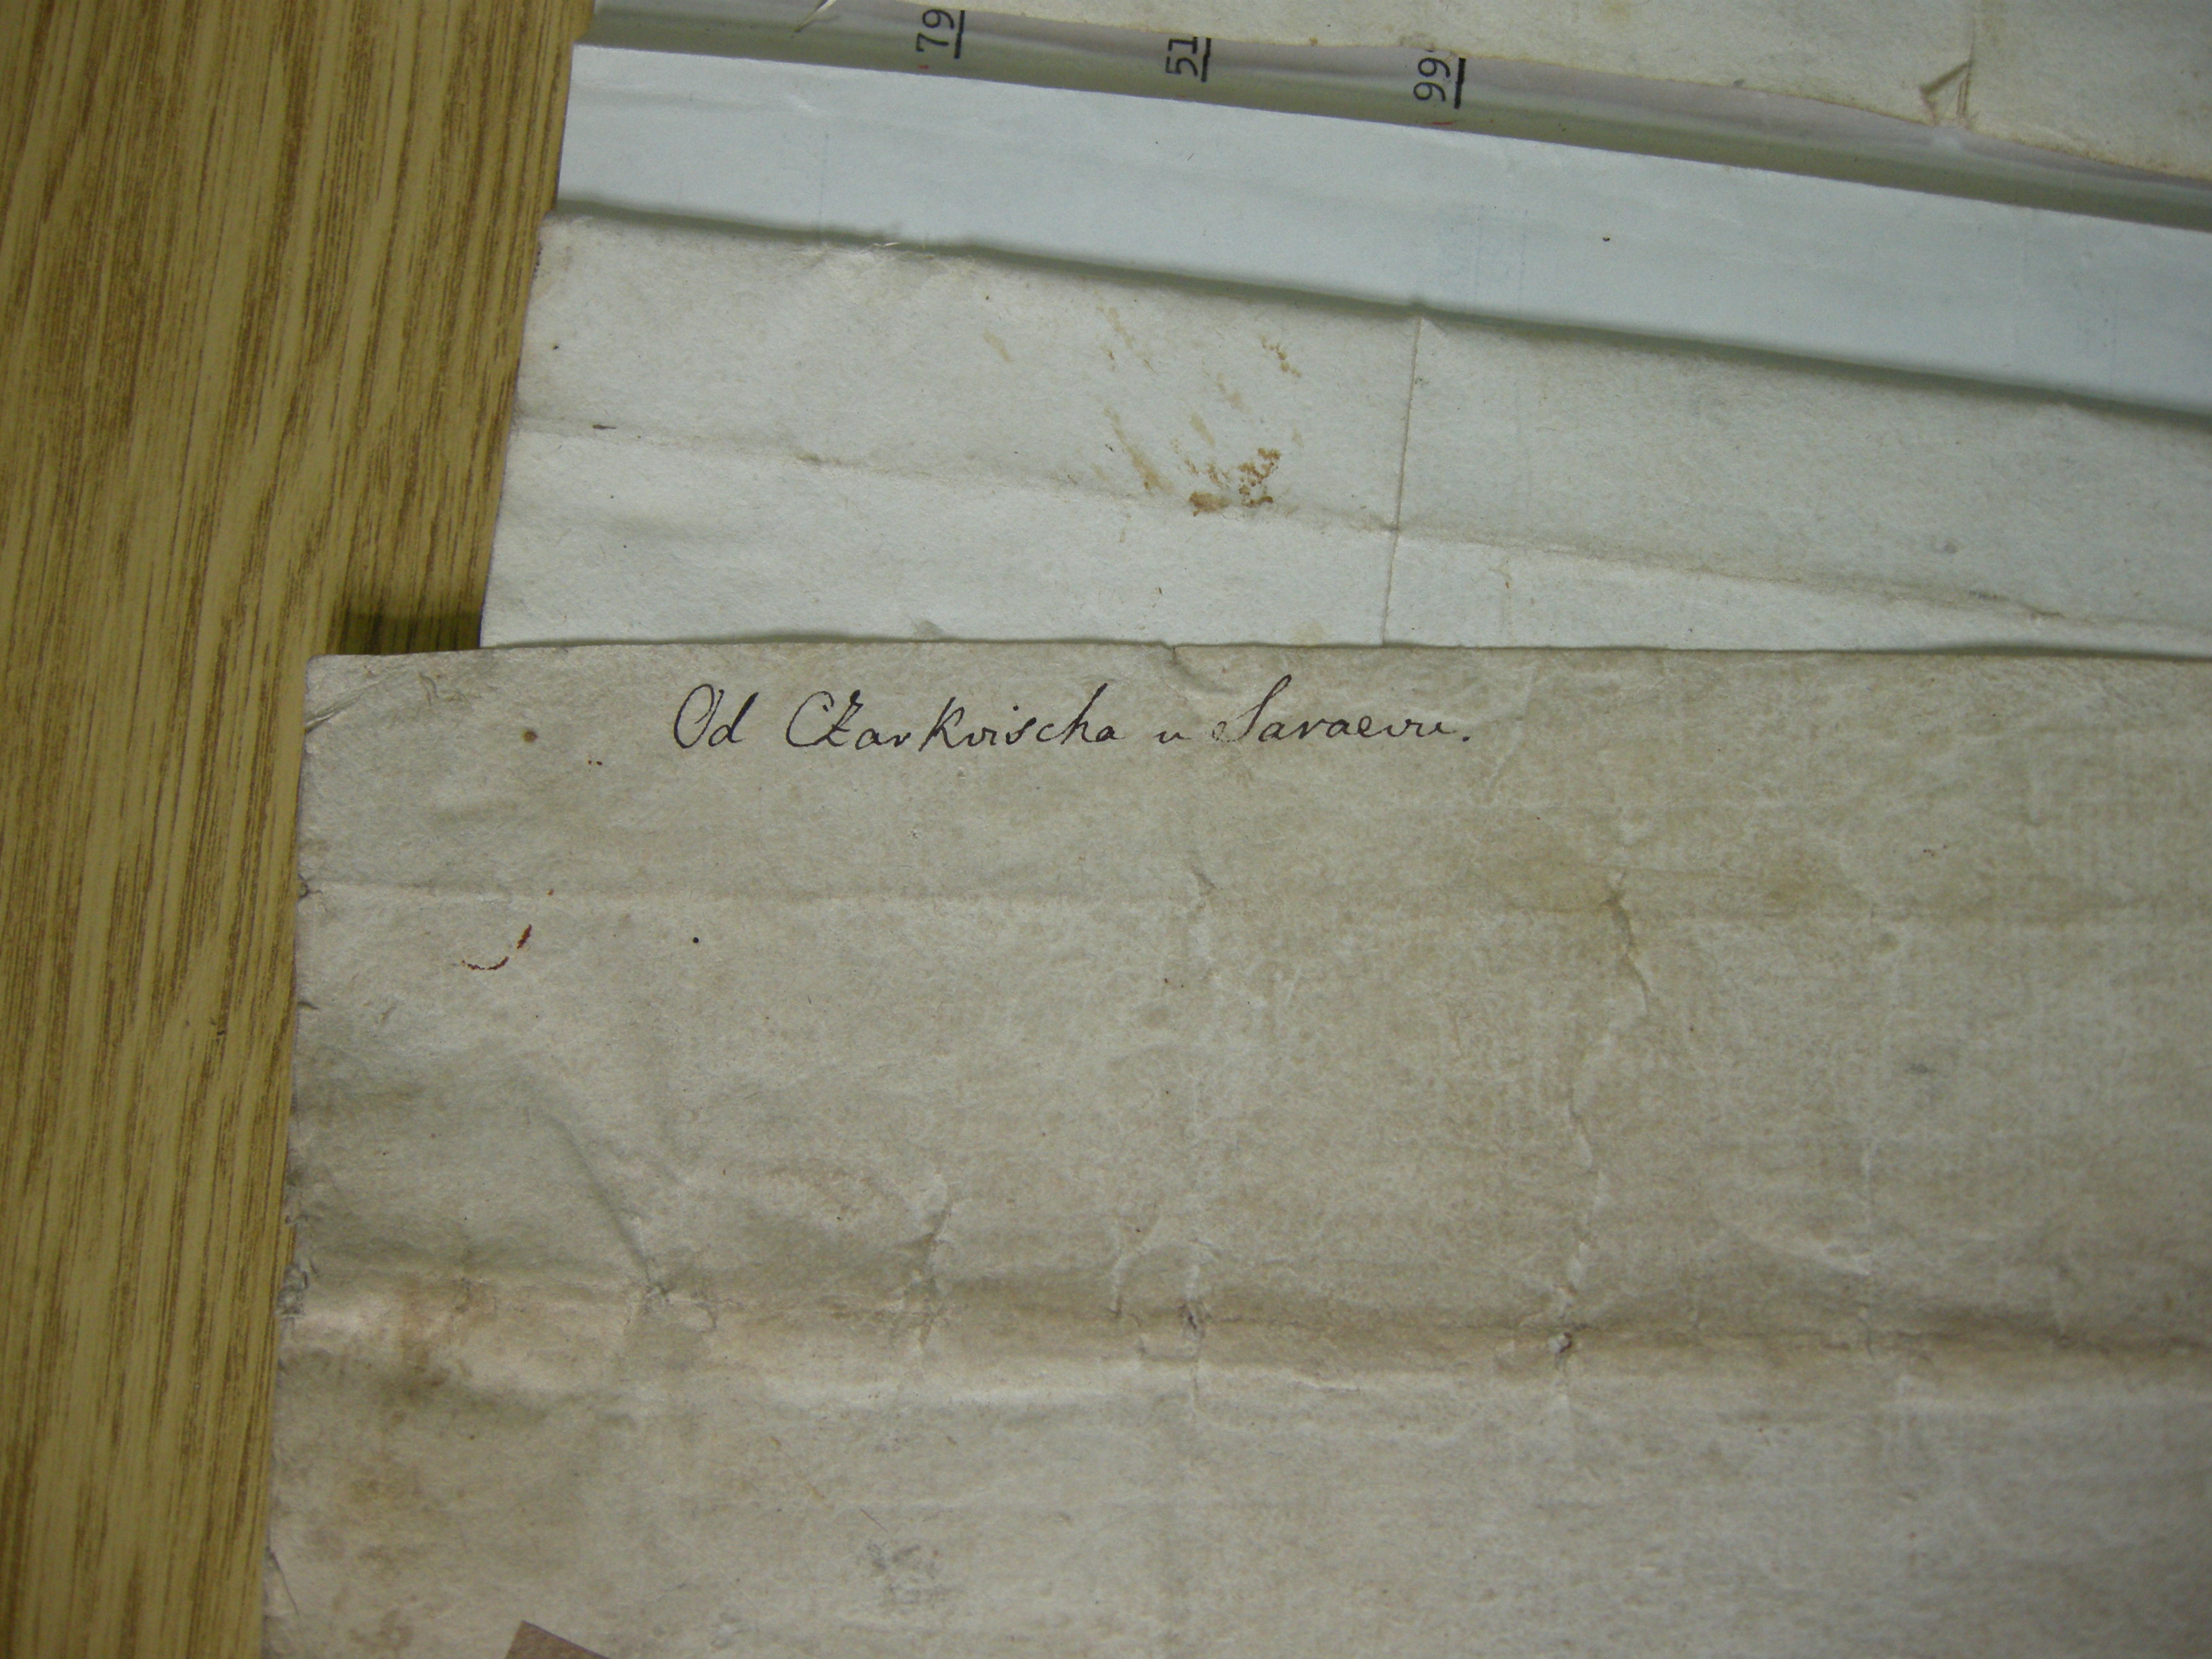 79
51
99
Od Czarkvischa u Saraevu.